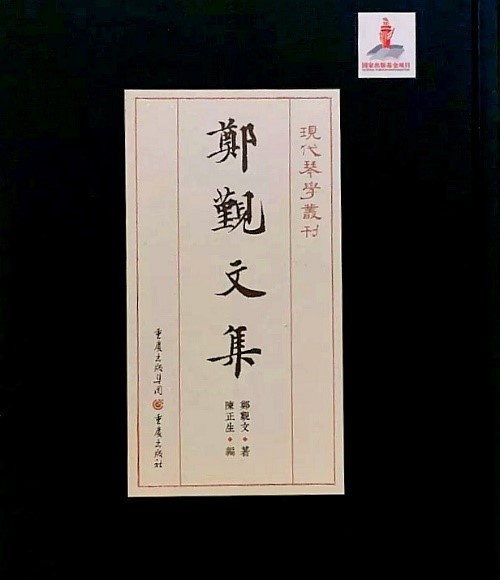 国家出版基金项目
現代琴學叢刊
鄭覲文集
鄭覲文◆著
陳正生◆編
重慶出版集團 重慶出版社